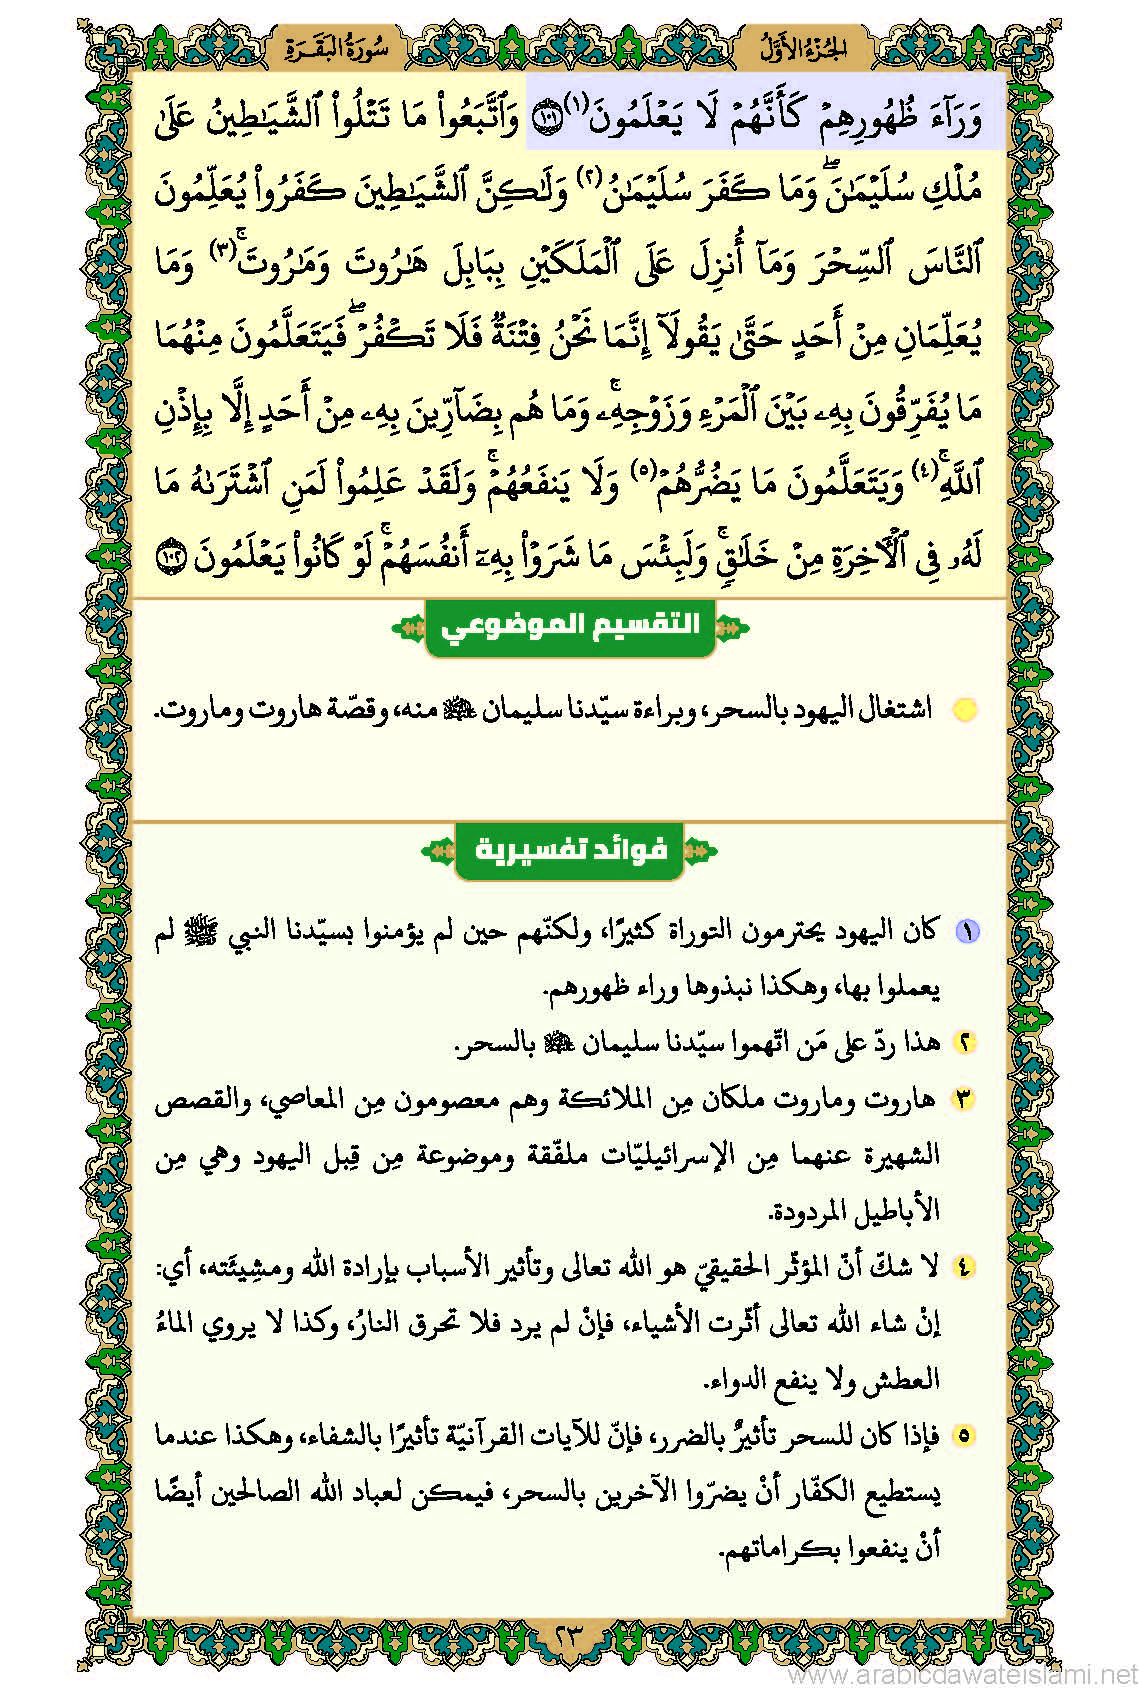 الجُزْءُ الأَوَّلُ
سُورَةُ البَقَرَةِ
وَرَآءَ ظُهُورِهِمْ كَأَنَّهُمْ لَا يَعْلَمُونَ(١) ١٠١ وَٱتَّبَعُوا۟ مَا تَتْلُوا۟ ٱلشَّيَٰطِينُ عَلَىٰ
مُلْكِ سُلَيْمَٰنَ ۖ وَمَا كَفَرَ سُلَيْمَٰنُ(٢) وَلَٰكِنَّ ٱلشَّيَٰطِينَ كَفَرُوا۟ يُعَلِّمُونَ
ٱلنَّاسَ ٱلسِّحْرَ وَمَآ أُنزِلَ عَلَى ٱلْمَلَكَيْنِ بِبَابِلَ هَٰرُوتَ وَمَٰرُوتَ ۚ(٣) وَمَا
يُعَلِّمَانِ مِنْ أَحَدٍ حَتَّىٰ يَقُولَآ إِنَّمَا نَحْنُ فِتْنَةٌ فَلَا تَكْفُرْ ۖ فَيَتَعَلَّمُونَ مِنْهُمَا
مَا يُفَرِّقُونَ بِهِۦ بَيْنَ ٱلْمَرْءِ وَزَوْجِهِۦ ۚ وَمَا هُم بِضَآرِّينَ بِهِۦ مِنْ أَحَدٍ إِلَّا بِإِذْنِ
ٱللَّهِ ۚ(٤) وَيَتَعَلَّمُونَ مَا يَضُرُّهُمْ(٥) وَلَا يَنفَعُهُمْ ۚ وَلَقَدْ عَلِمُوا۟ لَمَنِ ٱشْتَرَىٰهُ مَا
لَهُۥ فِى ٱلْءَاخِرَةِ مِنْ خَلَٰقٍ ۚ وَلَبِئْسَ مَا شَرَوْا۟ بِهِۦٓ أَنفُسَهُمْ ۚ لَوْ كَانُوا۟ يَعْلَمُونَ ١٠٢
التقسيم الموضوعي
اشتغال اليهود بالسحر، وبراءة سيّدنا سليمان عليه السلام منه، وقصّة هاروت وماروت.
فوائد تفسيرية
١ كان اليهود يحترمون التوراة كثيرًا، ولكنّهم حين لم يؤمنوا بسيّدنا النبي ﷺ لم
يعملوا بها، وهكذا نبذوها وراء ظهورهم.
٢ هذا ردّ على مَن اتّهموا سيّدنا سليمان عليه السلام بالسحر.
٣ هاروت وماروت ملكان مِن الملائكة وهم معصومون مِن المعاصي، والقصص
الشهيرة عنهما مِن الإسرائيليّات ملفّقة وموضوعة مِن قِبل اليهود وهي مِن
الأباطيل المردودة.
٤ لا شكّ أنّ المؤثّر الحقيقيّ هو الله تعالى وتأثير الأسباب بإرادة الله ومشِيئَته، أي:
إنْ شاء الله تعالى أثّرت الأشياء، فإنْ لم يرد فلا تحرق النارُ، وكذا لا يروي الماءُ
العطش ولا ينفع الدواء.
٥ فإذا كان للسحر تأثيرٌ بالضرر، فإنّ للآيات القرآنيّة تأثيرًا بالشفاء، وهكذا عندما
يستطيع الكفّار أنْ يضرّوا الآخرين بالسحر، فيمكن لعباد الله الصالحين أيضًا
أنْ ينفعوا بكراماتهم.
٢٣
www.arabicdawateislami.net